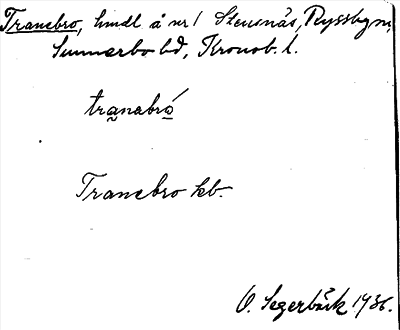 Tranebro, hmdl å nr 1 Stensnäs, Ryssby sn,
Sunnerbo hd, Kronob. l.
tra̰nabró̲
Tranebro kb.
O. Segerbäck 1936.